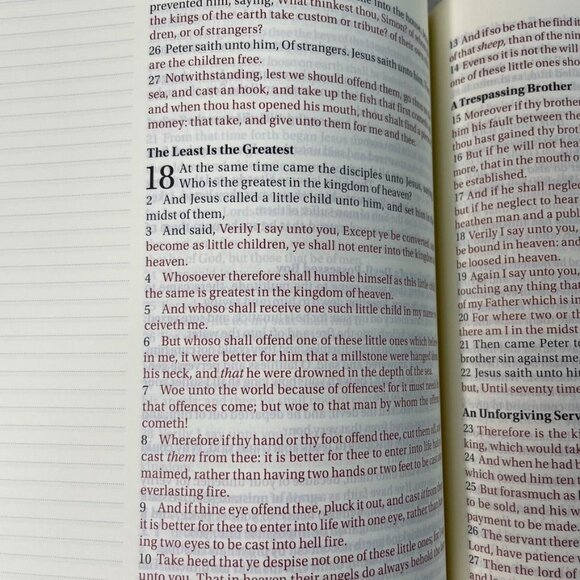 prevented him, saying, What thinkest thou, Simon? of
the kings of the earth take custom or tribute? of their own
dren, or of strangers?
26 Peter saith unto him, Of strangers. Jesus saith unto him,
are the children free.
27 Notwithstanding, lest we should offend them, go thou
sea, and cast an hook, and take up the fish that first com
and when thou hast opened his mouth, thou shalt find a
money: that take, and give unto them for me and thee.
The Least Is the Greatest
18 At the same time came the disciples unto Jesus,
Who is the greatest in the kingdom of heaven?
2 And Jesus called a little child unto him, and set him in
midst of them,
3 And said, Verily I say unto you, Except ye be converted,
become as little children, ye shall not enter into the kingdom
heaven.
4 Whosoever therefore shall humble himself as this little child,
the same is greatest in the kingdom of heaven.
5 And whoso shall receive one such little child in my name
ceiveth me.
6 But whoso shall offend one of these little ones which believe
in me, it were better for him that a millstone were hanged about
his neck, and that he were drowned in the depth of the sea.
7 Woe unto the world because of offences! for it must needs
that offences come; but woe to that man by whom the offence
cometh!
8 Wherefore if thy hand or thy foot offend thee, cut them off, and
cast them from thee: it is better for thee to enter into life halt
maimed, rather than having two hands or two feet to be cast into
everlasting fire.
9 And if thine eye offend thee, pluck it out, and cast it from thee:
it is better for thee to enter into life with one eye, rather than hav
ing two eyes to be cast into hell fire.
10 Take heed that ye despise not one of these little ones; for
unto you, That in heaven their angels do always behold the
13 And if so be that he find it
of that sheep, than of the nine
14 Even so it is not the will
one of these little ones shou
A Trespassing Brother
15 Moreover if thy brother
him his fault between thee
thou hast gained thy brother
16 But if he will not hear
more, that in the mouth of
be established.
17 And if he shall neglect
but if he neglect to hear
heathen man and a publi
18 Verily I say unto you,
be bound in heaven: and
be loosed in heaven.
19 Again I say unto you,
touching any thing that
of my Father which is in
20 For where two or th
there am I in the midst
21 Then came Peter to
brother sin against me
22 Jesus saith unto hi
but, Until seventy time
An Unforgiving Serv
23 Therefore is the ki
king, which would take
24 And when he had
which owed him ten
25 But forasmuch as
to be sold, and his w
payment to be made.
26 The servant there
Lord, have patience
27 Then the lord of